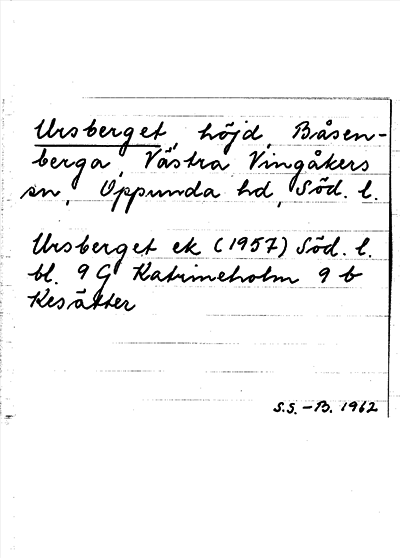 Ursberget, höjd, Båsen-
berga, Västra Vingåkers
sn, Oppunda hd, Söd. l.
Ursberget ek (1957) Söd. l.
bl. 9 G Katrineholm 9 b
Kesätter
S.S. - B. 1962